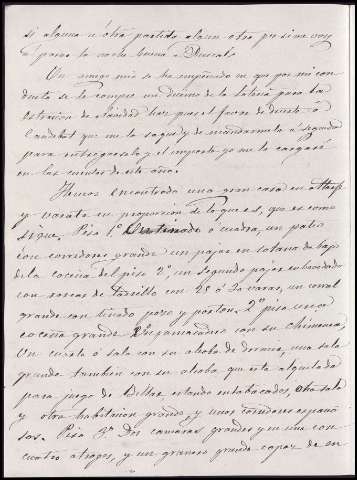 si alguna u otra partida algun otro pr si me voy
á pasar la noche buena a
Un amigo mio se ha empeñado en que por mi con
ducto se le compre un decimo de la loteria para la
estracion de Navidad haz pues el favor de decirle á
que me lo saque y de mandarmelo á seguida
para entregarselo y el importe ya me lo cargaré
en las cuentas de este año.
Hemos encontrado una gran casa en
y varata en proporcion de lo que es, que es como
sigue. Piso 1º ó cuadra, un patio
con corredores grande un pajar en sotano de bajo
de la cocina del piso 2º, un segundo pajar embovedado
con roscas de ladrillo con 20 ó varas, un corral
grande con tinado pozo y porton, 2º piso una
cocina grande con su chimenea,
Un cuarto ó sala con su alcoba de dormir, una sala
grande tambien con su alcoba que esta alquilada
para juego de Billar estando entabacadas, otra sala
y otra habitacion grande, y unos corredores espacio
sos. Piso 3º Dos camaras grandes y en una con
cuatro atrojes, y un granero grande capaz de en